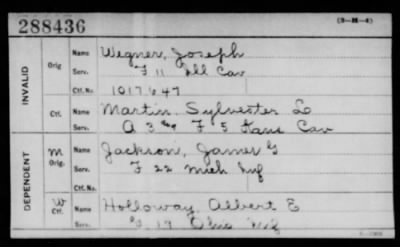 288436 (3-H-4)
INVALID
Orig Name Wegner, Joseph
Serv. F 11 Ill Cav
Ctf. No. 1017647
Ctf. Name Martin, Sylvester L
Serv. A 3 & F 5 Kans Cav
DEPENDENT
M Orig. Name Jackson, James G
Serv. F 22 Mich Inf
Ctf. No.
W Ctf. Name Holloway, Albert E
Serv. 19 Ohio Inf